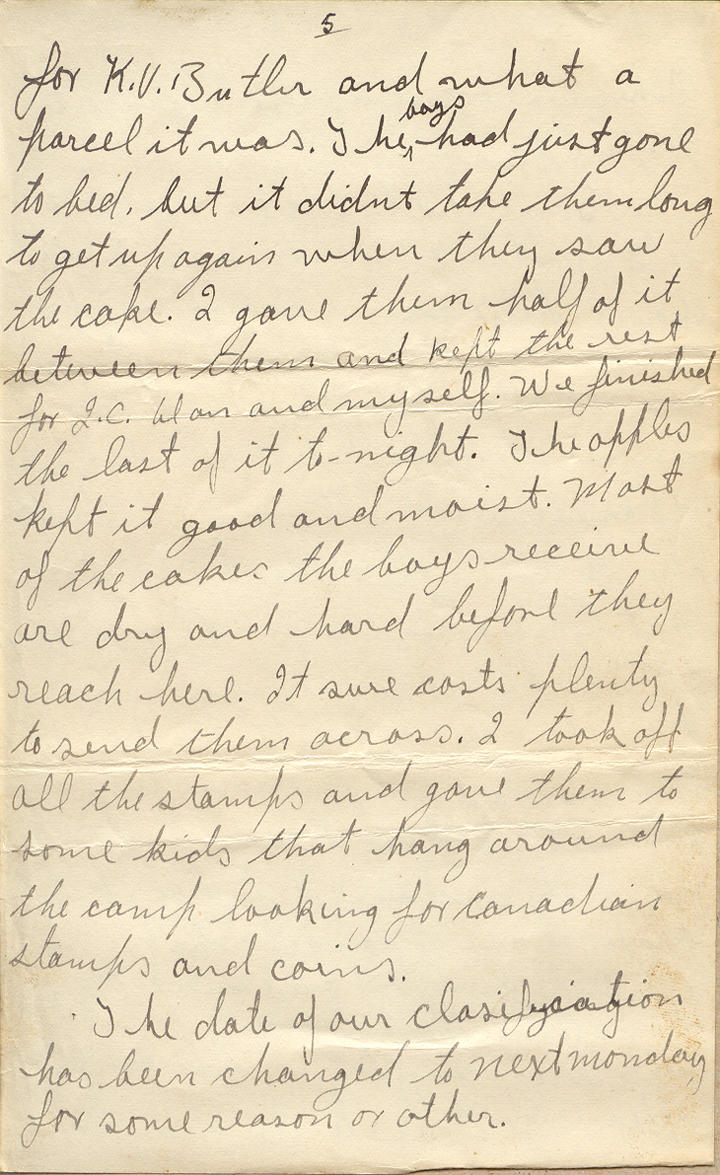 5
for K.V. Butler and what a
parcel it was. The boys had just gone
to bed, but it didnt take them long
to get up again when they saw
the cake. I gave them half of it
between them and kept the rest
for I.C. and myself. We finished
the last of it to-night. The apples
kept it good and moist. Most
of the cakes the boys receive
are dry and hard before they
reach here. It sure costs plenty
to send them across. I took off
all the stamps and gave them to
some kids that hang around
the camp looking for Canadian
stamps and coins.
The date of our
has been changed to next monday
for some reason or other.